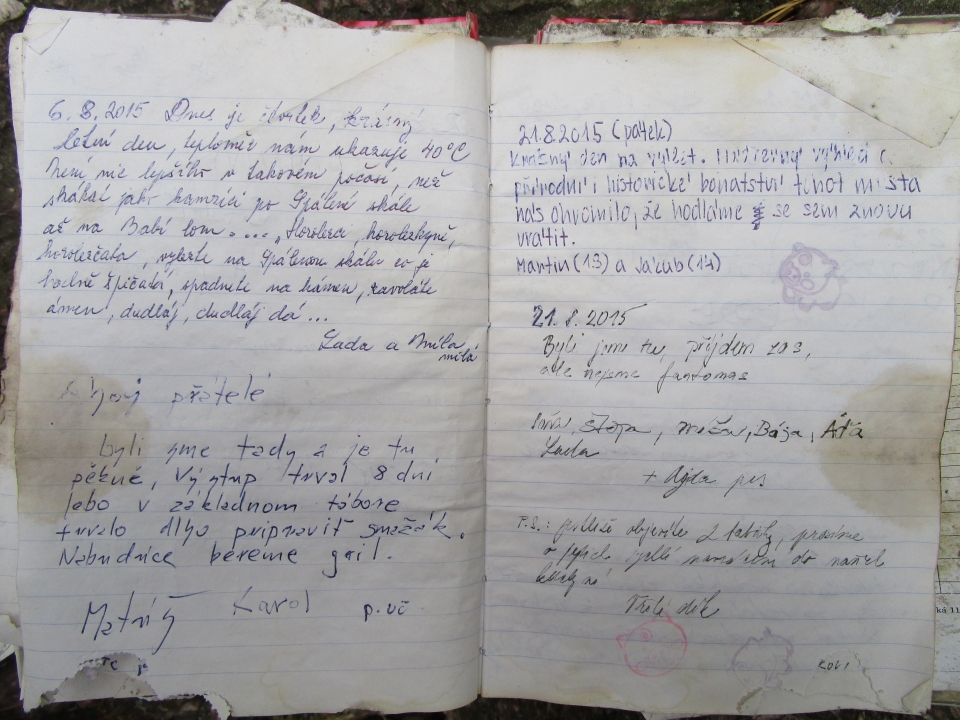 6.8.2015 Dnes je čtvrtek, krásný
letní den, teploměr nám ukazuje 40°C
Není nic lepšího v takovém počasí, než
skákat jako kamzíci po Spálení skále
až na Babí lom.... „Horolezci, horolezkyně,
horolezčata, vylezte na Spálenou skálu co je
hodně špičatá, spadnete na kámen, zavoláte
ámen, dudláj, dudláj dá...
Lada a Míla
milá
Ahoj přátelé
byli sme tady a je tu
pěkné, Výstup trval 8 dní
lebo v základnom tábore
trvalo dlho pripraviť smažák.
Nabudúce bereme gril.
Matúš Karol p.uč.
21.8.2015 (pátek)
Krásný den na výlet. Nádherný výhled
přírodní i historické bohatství tohot místa
nás ohromilo, že hodláme se sem znovu
vrátit.
Martin (13) a Jakub (14)
21.8.2015
Byli jsme tu, přijdem zas,
ale nejsme fantomas
Štěpa, Míša, Bája, Áťa
Lada
+ Ajda pes
P.S.: pokud objevíte 2 tatínky, prosíme
o jejich navrácení do naší
Vřelé dík
KOLI